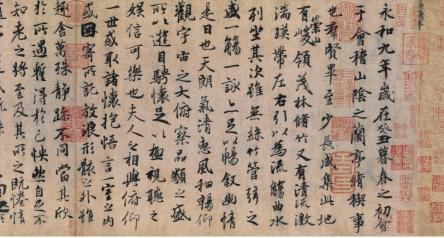 永和九年歲在癸丑暮春之初會
于會稽山陰之蘭亭脩稧事
也群賢畢至少長咸集此地
有崇山峻領茂林脩竹又有清流激
湍暎帶左右引以為流觴曲水
列坐其次雖無絲竹管弦之
盛一觴一詠亦足以暢敘幽情
是日也天朗氣清惠風和暢仰
觀宇宙之大俯察品類之盛
所以遊目騁懷足以極視聽之
娛信可樂也夫人之相與俯仰
一世或取諸懷抱悟言一室之內
或因寄所託放浪形骸之外雖
趣舍萬殊靜躁不同當其欣
於所遇蹔得於己怏然自足不
知老之將至及其所之既惓情